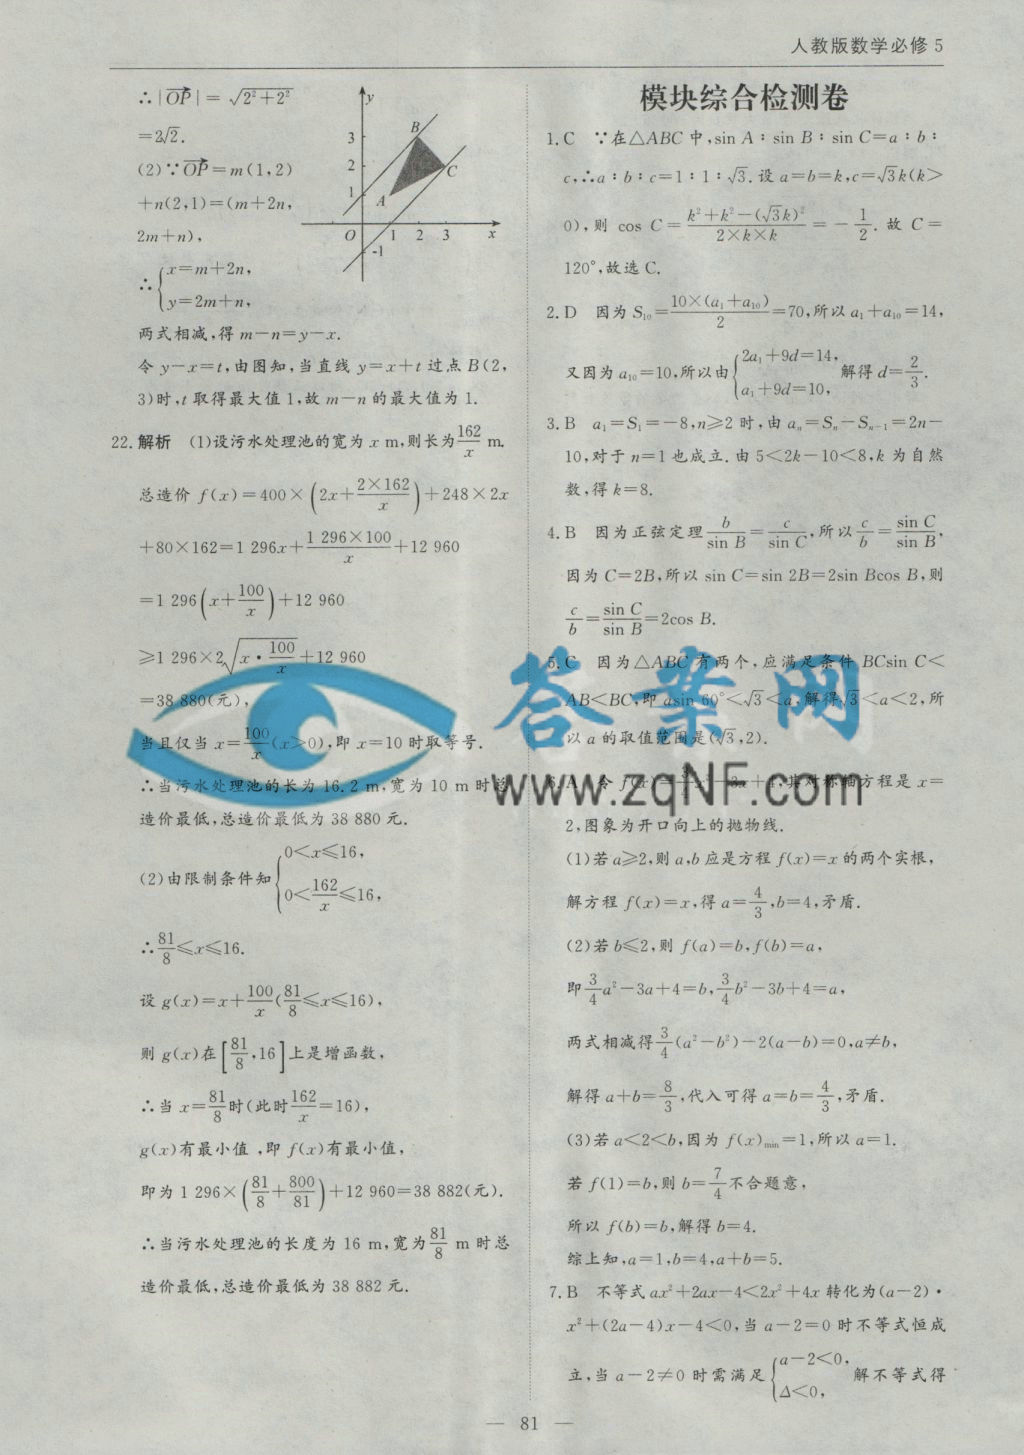 人教版数学必修 5
∴|OP|=√(2²+2²)
=2√2.
(2)∵OP=m(1,2)
+n(2,1)=(m+2n,
2m+n),
∴{x=m+2n,
y=2m+n,
y
3
2
1
O
1 2 3
x
-1
A
B
C
两式相减,得 m-n=y-x.
令 y-x=t,由图知,当直线 y=x+t 过点 B(2,
3)时,t 取得最大值 1,故 m-n 的最大值为 1.
22.解析 (1)设污水处理池的宽为 x m,则长为162/x m.
总造价 f(x)=400×(2x+(2×162)/x)+248×2x
+80×162=1 296x+(1 296×100)/x+12 960
=1 296(x+100/x)+12 960
≥1 296×2√(x·100/x)+12 960
=38 880(元),
当且仅当 x=100/x(x>0),即 x=10 时取等号.
∴当污水处理池的长为 16.2 m,宽为 10 m 时总
造价最低,总造价最低为 38 880 元.
(2)由限制条件知{0<x≤16,
0<162/x≤16,
∴81/8≤x≤16.
设 g(x)=x+100/x(81/8≤x≤16),
则 g(x)在[81/8,16]上是增函数,
∴当 x=81/8时(此时162/x=16),
g(x)有最小值 ,即 f(x)有最小值,
即为 1 296×(81/8+800/81)+12 960=38 882(元).
∴当污水处理池的长度为 16 m,宽为81/8 m 时总
造价最低,总造价最低为 38 882 元.
模块综合检测卷
1.C ∵在△ABC 中,sin A∶sin B∶sin C=a∶b∶
c,∴a∶b∶c=1∶1∶√3.设 a=b=k,c=√3k(k>
0),则 cos C=(k²+k²-(√3k)²)/(2×k×k)=-1/2.故 C=
120°,故选 C.
2.D 因为 S₁₀=10×(a₁+a₁₀)/2=70,所以 a₁+a₁₀=14,
又因为 a₁₀=10,所以由{2a₁+9d=14,
a₁+9d=10, 解得 d=2/3.
3.B a₁=S₁=-8,n≥2 时,由 aₙ=Sₙ-Sₙ₋₁=2n-
10,对于 n=1 也成立.由 5<2k-10<8,k 为自然
数,得 k=8.
4.B 因为正弦定理b/sin B=c/sin C,所以c/b=sin C/sin B,
因为 C=2B,所以 sin C=sin 2B=2sin Bcos B,则
c/b=sin C/sin B=2cos B.
5.C 因为△ABC 有两个,应满足条件 BCsin C<
AB<BC,即 asin 60°<√3<a,解得√3<a<2,所
以 a 的取值范围是(√3,2).
6.A 令 f(x)=3/4x²-3x+4,其对称轴方程是 x=
2,图象为开口向上的抛物线.
(1)若 a≥2,则 a,b 应是方程 f(x)=x 的两个实根,
解方程 f(x)=x,得 a=4/3,b=4,矛盾.
(2)若 b≤2,则 f(a)=b,f(b)=a,
即3/4a²-3a+4=b,3/4b²-3b+4=a,
两式相减得3/4(a²-b²)-2(a-b)=0,a≠b,
解得 a+b=8/3,代入可得 a=b=4/3,矛盾.
(3)若 a<2<b,因为 f(x)min=1,所以 a=1.
若 f(1)=b,则 b=7/4不合题意,
所以 f(b)=b,解得 b=4.
综上知,a=1,b=4,a+b=5.
7.B 不等式 ax²+2ax-4<2x²+4x 转化为(a-2)·
x²+(2a-4)x-4<0,当 a-2=0 时不等式恒成
立,当 a-2≠0 时需满足{a-2<0,
Δ<0, 解不等式得
答案网
www.zqNF.com
— 81 —